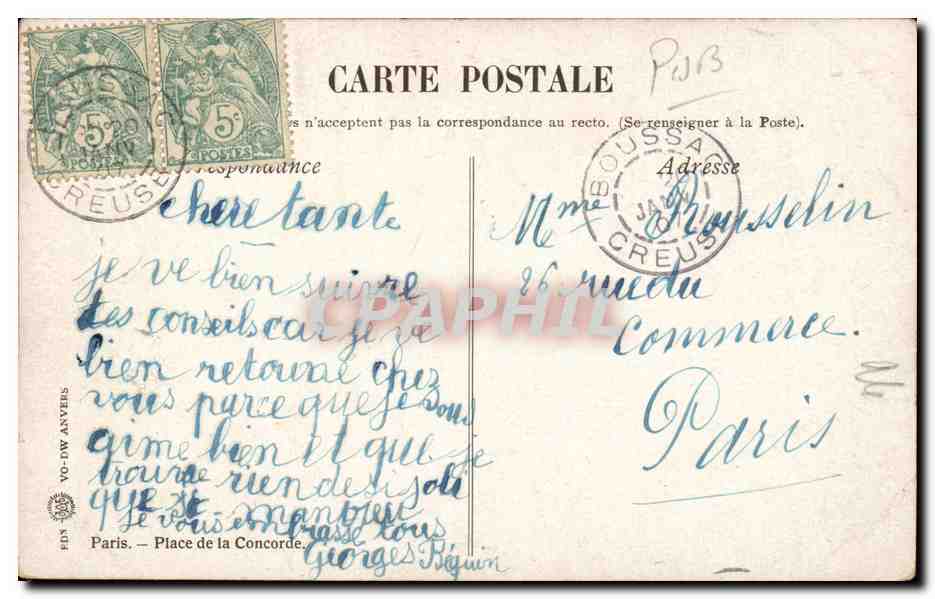 CARTE POSTALE
s n'acceptent pas la correspondance au recto. (Se renseigner à la Poste).
respondance
Adresse
PUB
5c
POSTES
5c
POSTES
CREUSE
BOUSSAC
JANV
CREUSE
chere tante
je ve bien suivre
tes conseils car je ve
bien retourne chez
vous parce que je vous
aime bien et que je
trouve rien de si joli
que
Je vous embrasse tous
Georges Béguin
Mme Rousselin
26 rue du
Commerce.
Paris
CPAPHIL
EDN VO-DW ANVERS
Paris. — Place de la Concorde.